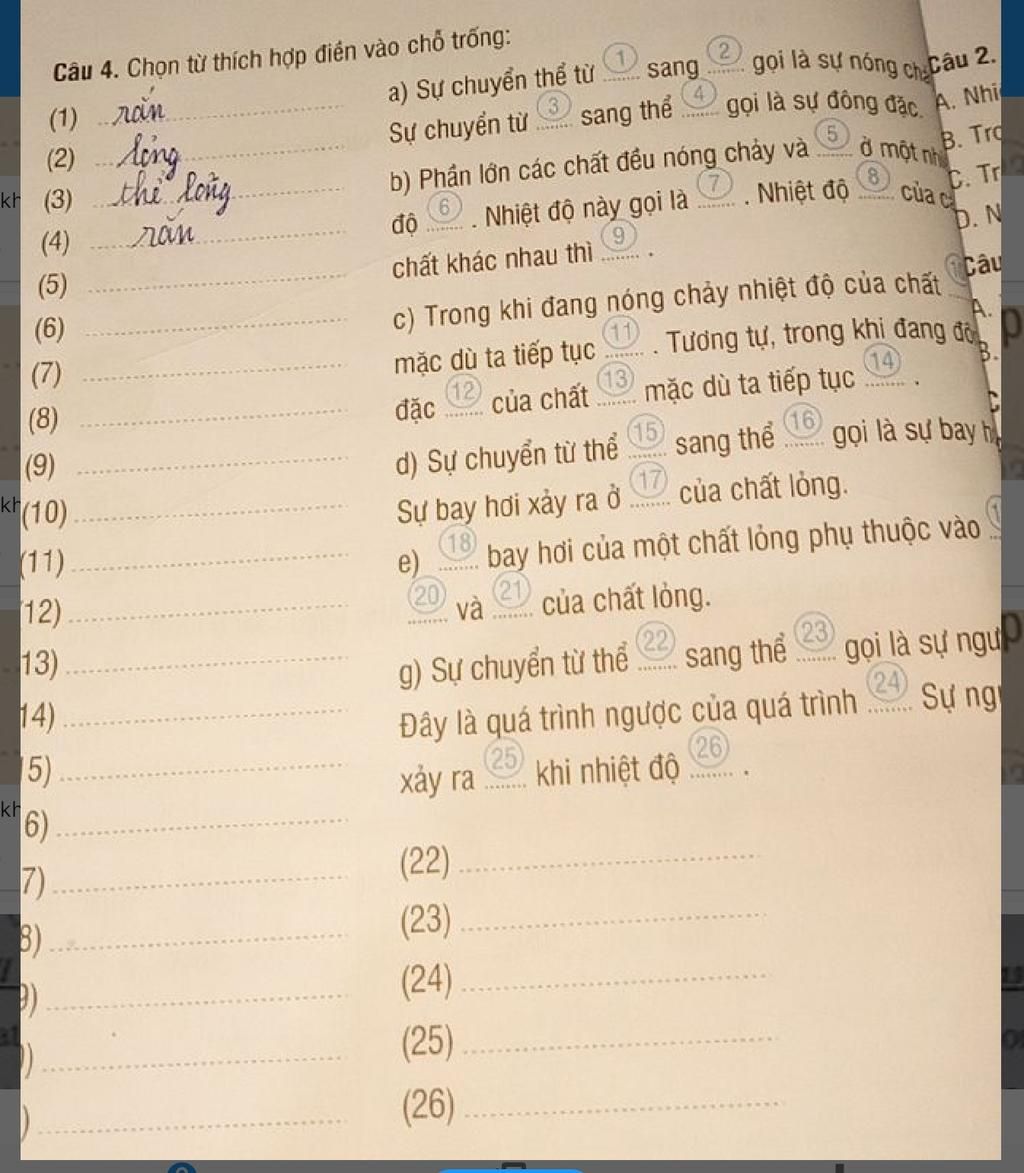 Câu 4. Chọn từ thích hợp điền vào chỗ trống:
(1) rắn
(2) lỏng
(3) thể lỏng
(4) rắn
(5)
(6)
(7)
(8)
(9)
(10)
(11)
12)
13)
14)
5)
6)
7)
8)
9)
)
)
a) Sự chuyển thể từ (1) sang (2) gọi là sự nóng
Sự chuyển từ (3) sang thể (4) gọi là sự đông đặc.
b) Phần lớn các chất đều nóng chảy và (5) ở một
độ (6). Nhiệt độ này gọi là (7). Nhiệt độ (8) của
chất khác nhau thì (9).
c) Trong khi đang nóng chảy nhiệt độ của chất
mặc dù ta tiếp tục (11). Tương tự, trong khi đang
đặc (12) của chất (13) mặc dù ta tiếp tục (14).
d) Sự chuyển từ thể (15) sang thể (16) gọi là sự bay
Sự bay hơi xảy ra ở (17) của chất lỏng.
e) (18) bay hơi của một chất lỏng phụ thuộc vào
(20) và (21) của chất lỏng.
g) Sự chuyển từ thể (22) sang thể (23) gọi là sự
Đây là quá trình ngược của quá trình (24) Sự
xảy ra (25) khi nhiệt độ (26).
(22)
(23)
(24)
(25)
(26)
Câu 2.
A.
B.
C.
D.
Câu
A.
B.